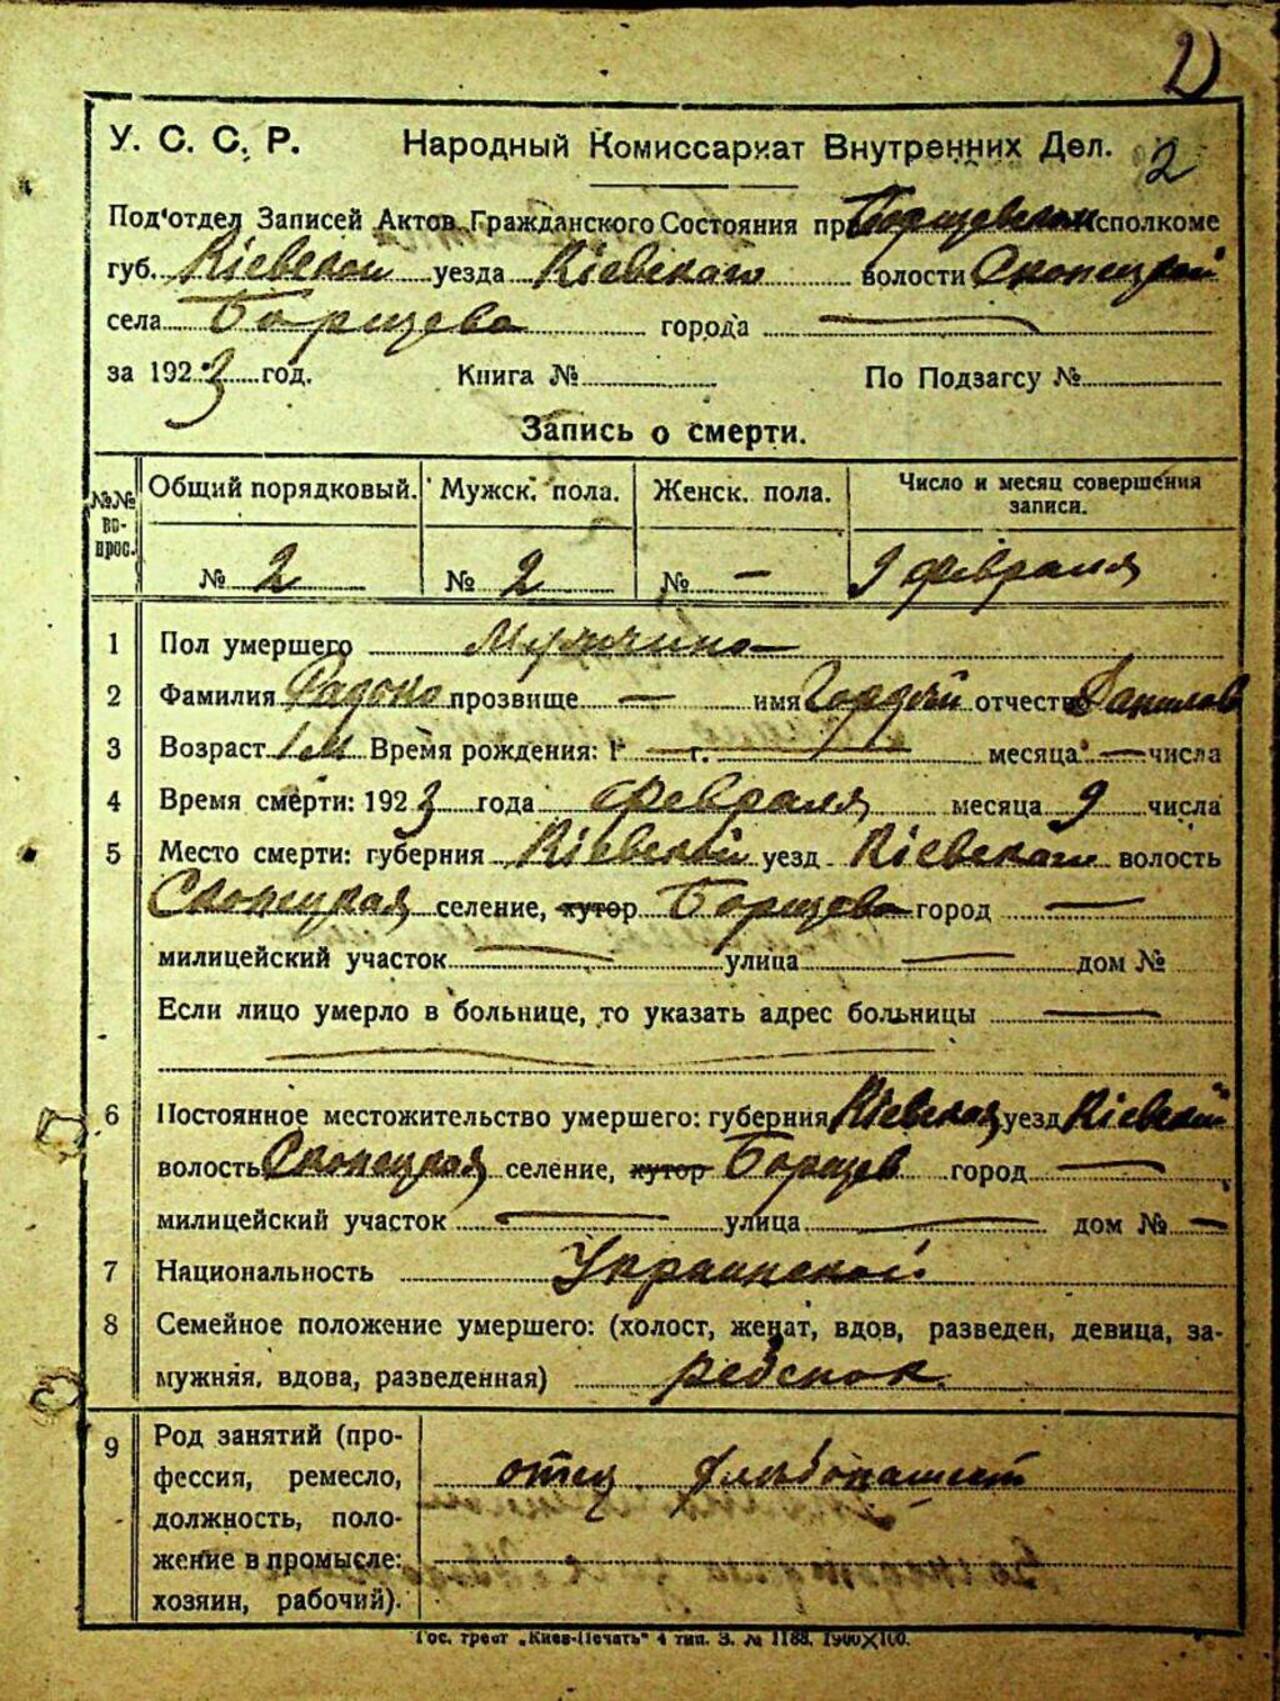 2
У. С. С. Р. Народный Комиссариат Внутренних Дел. 2
Под'отдел Записей Актов Гражданского Состояния при Борщевском Исполкоме
губ. Кіевской уезда Кіевскаго волости Скопецкой
села Борщева города —
за 1923 год. Книга № По Подзагсу №
Запись о смерти.
№№ вопрос. Общий порядковый. Мужск. пола. Женск. пола. Число и месяц совершения записи.
№ 2 № 2 № — 9 февраля
1 Пол умершего Мужчина
2 Фамилия прозвище — имя Гордей отчество Данилов
3 Возраст 1 м Время рождения: 1 — г. — месяца — числа
4 Время смерти: 1923 года февраля месяца 9 числа
5 Место смерти: губерния Кіевской уезд Кіевскаго волость
Скопецкая селение, хутор Борщева город —
милицейский участок — улица — дом №
Если лицо умерло в больнице, то указать адрес больницы —
6 Постоянное местожительство умершего: губерния Кіевская уезд Кіевский
волость Скопецкая селение, хутор Борщев город —
милицейский участок — улица — дом № —
7 Национальность Украинской
8 Семейное положение умершего: (холост, женат, вдов, разведен, девица, за-
мужняя, вдова, разведенная) ребенок
9 Род занятий (про-
фессия, ремесло, отец хлебопашест
должность, поло-
жение в промысле:
хозяин, рабочий).
Гос. трест „Киев-Печать" 4 тип. З. № 1188. 1900×100.